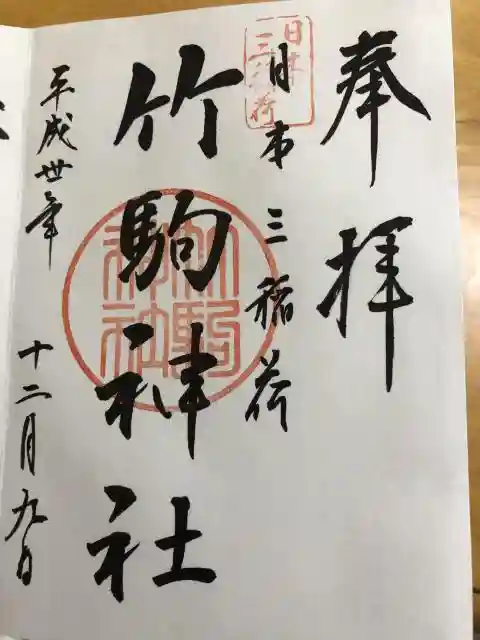 奉拝
日本三稲荷
日本三稲荷
竹駒神社
竹駒神社
平成卅年
十二月九日